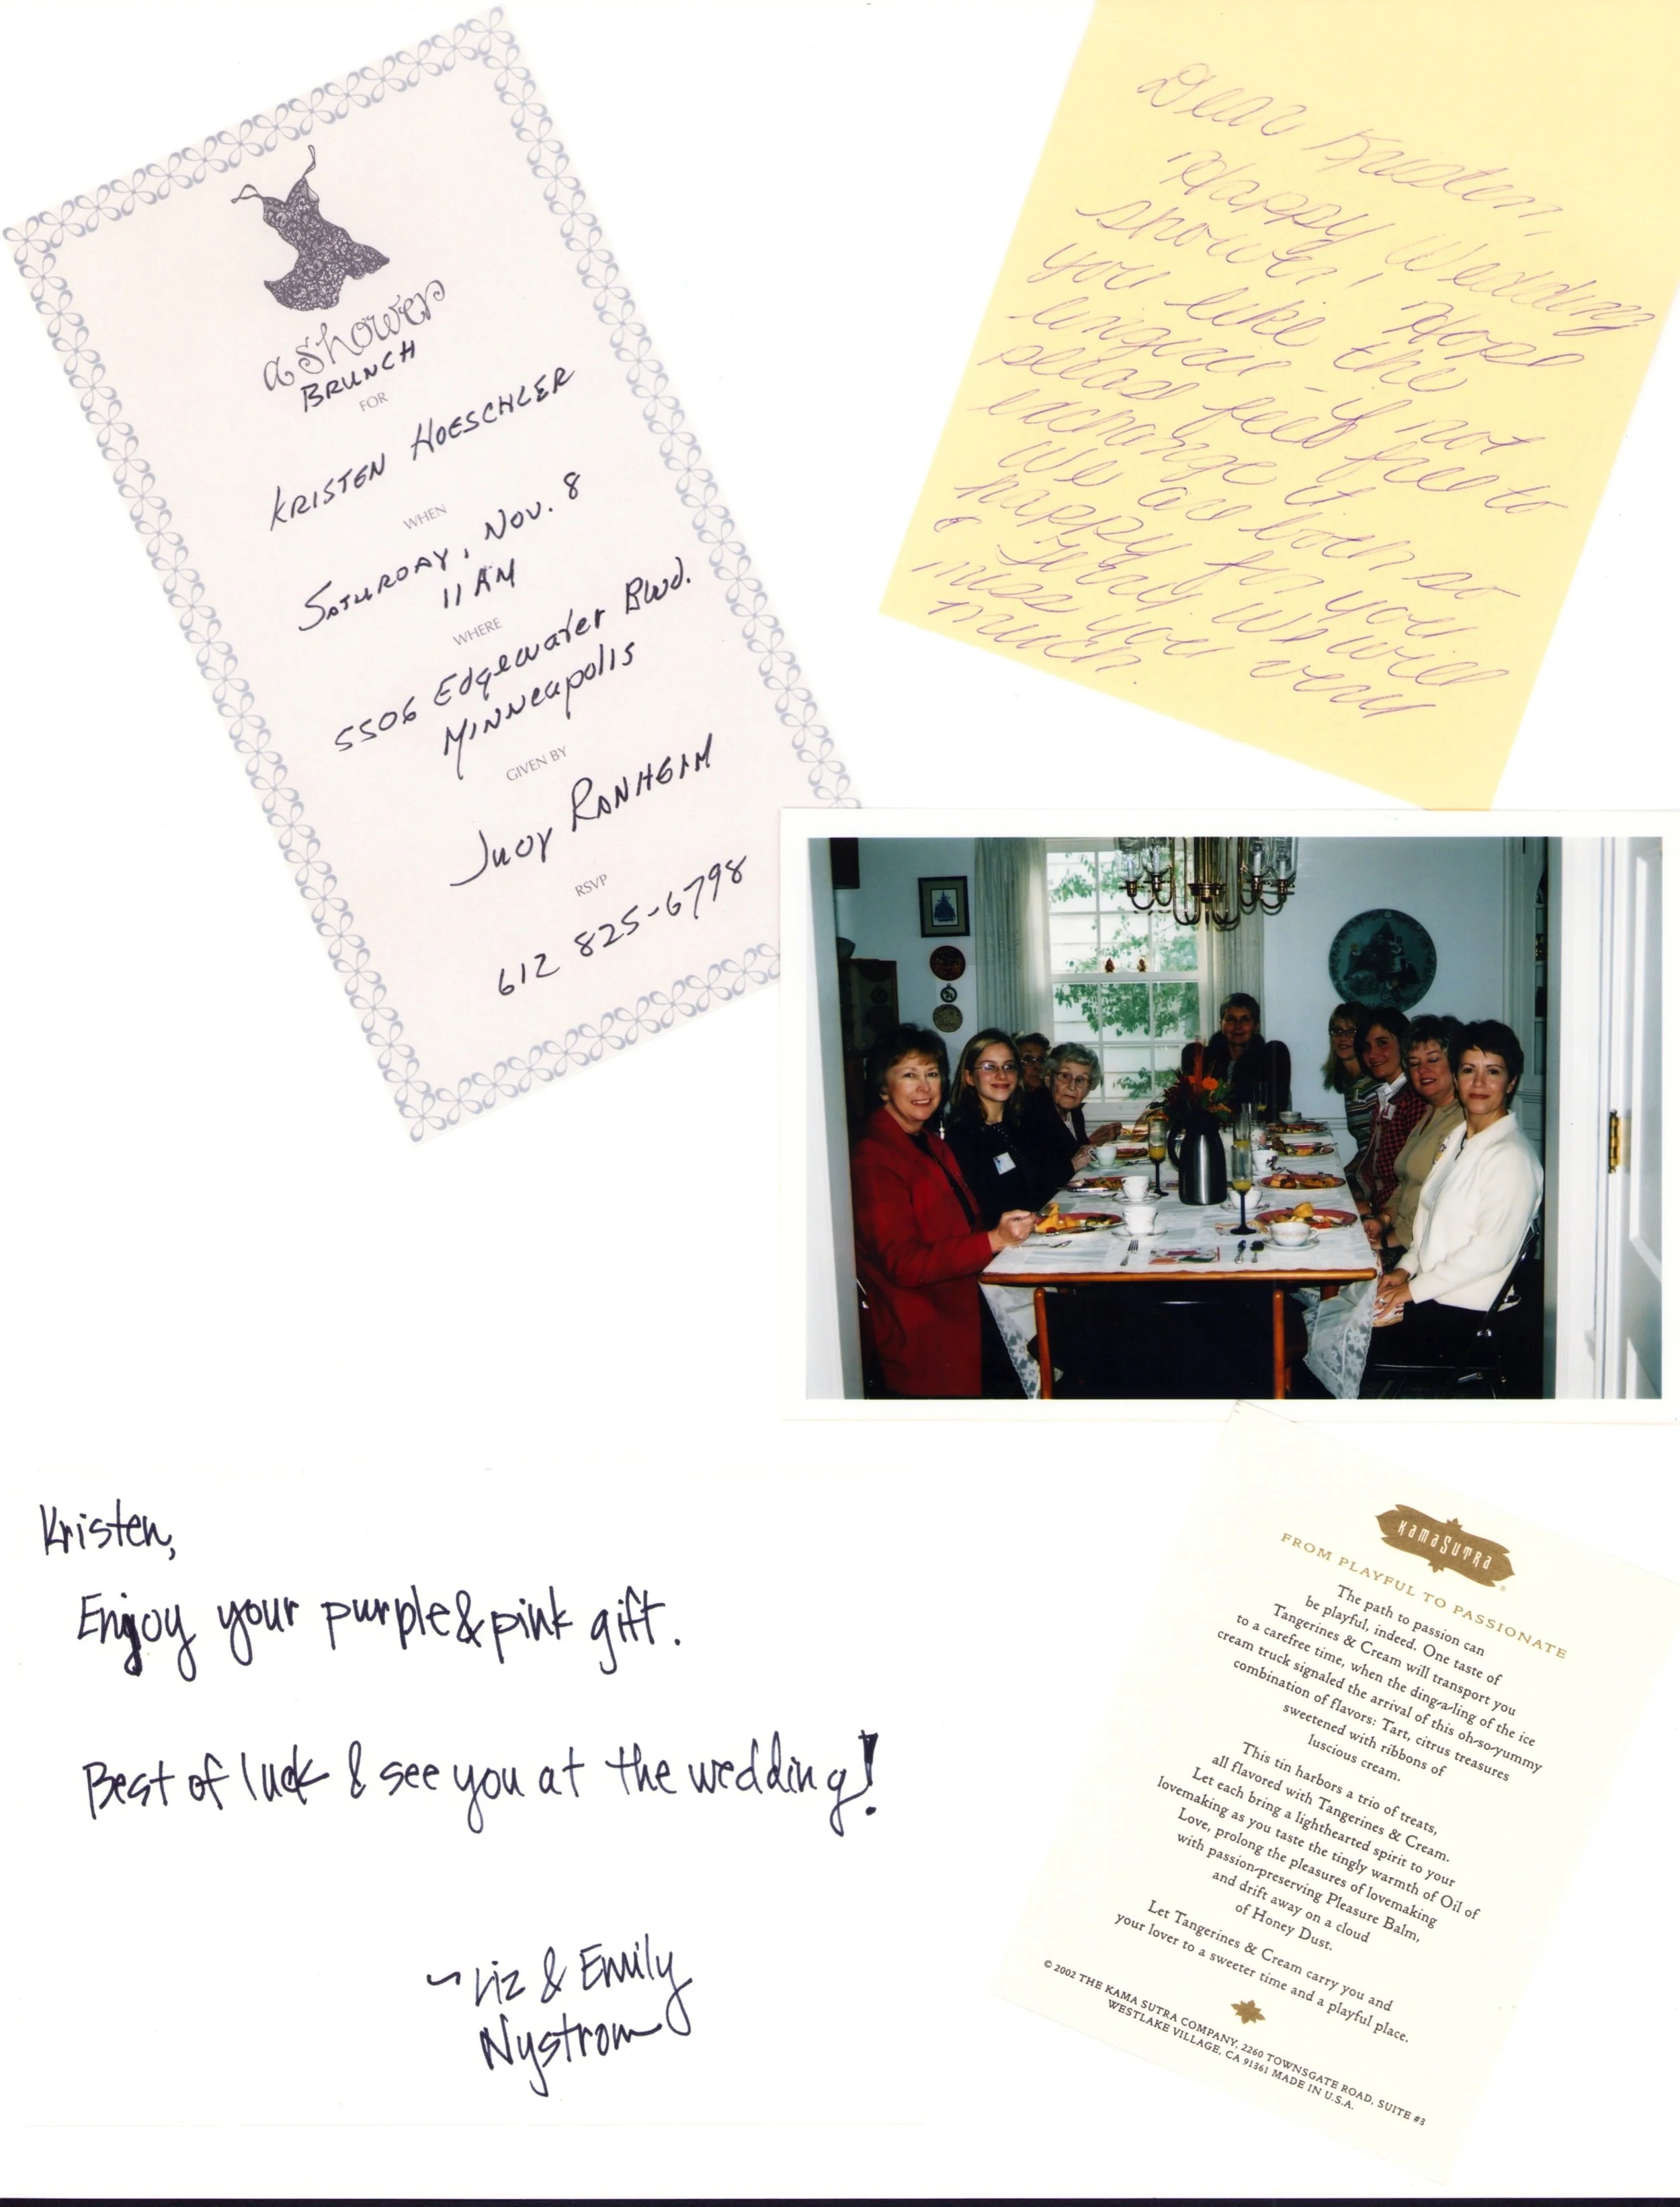 a shower
BRUNCH
FOR
KRISTEN HOESCHLER
WHEN
SATURDAY, NOV. 8
11 AM
WHERE
5506 Edgewater Blvd.
Minneapolis
GIVEN BY
JUDY RANHEIM
RSVP
612 825-6798
Dear Kristen,
Happy Wedding
shower! Hope
you like the
lingerie - if not
please feel free to
exchange it
We are both so
happy for you
& will
miss you very
much.
Kristen,
Enjoy your purple & pink gift.
Best of luck & see you at the wedding!
~ Liz & Emily
Nystrom
KamaSutra®
FROM PLAYFUL TO PASSIONATE
The path to passion can
be playful, indeed. One taste of
Tangerines & Cream will transport you
to a carefree time, when the ding-a-ling of the ice
cream truck signaled the arrival of this oh-so-yummy
combination of flavors: Tart, citrus treasures
sweetened with ribbons of
luscious cream.
This tin harbors a trio of treats,
all flavored with Tangerines & Cream.
Let each bring a lighthearted spirit to your
lovemaking as you taste the tingly warmth of Oil of
Love, prolong the pleasures of lovemaking
with passion-preserving Pleasure Balm,
and drift away on a cloud
of Honey Dust.
Let Tangerines & Cream carry you and
your lover to a sweeter time and a playful place.
© 2002 THE KAMA SUTRA COMPANY, 2260 TOWNSGATE ROAD, SUITE #3
WESTLAKE VILLAGE, CA 91361 MADE IN U.S.A.